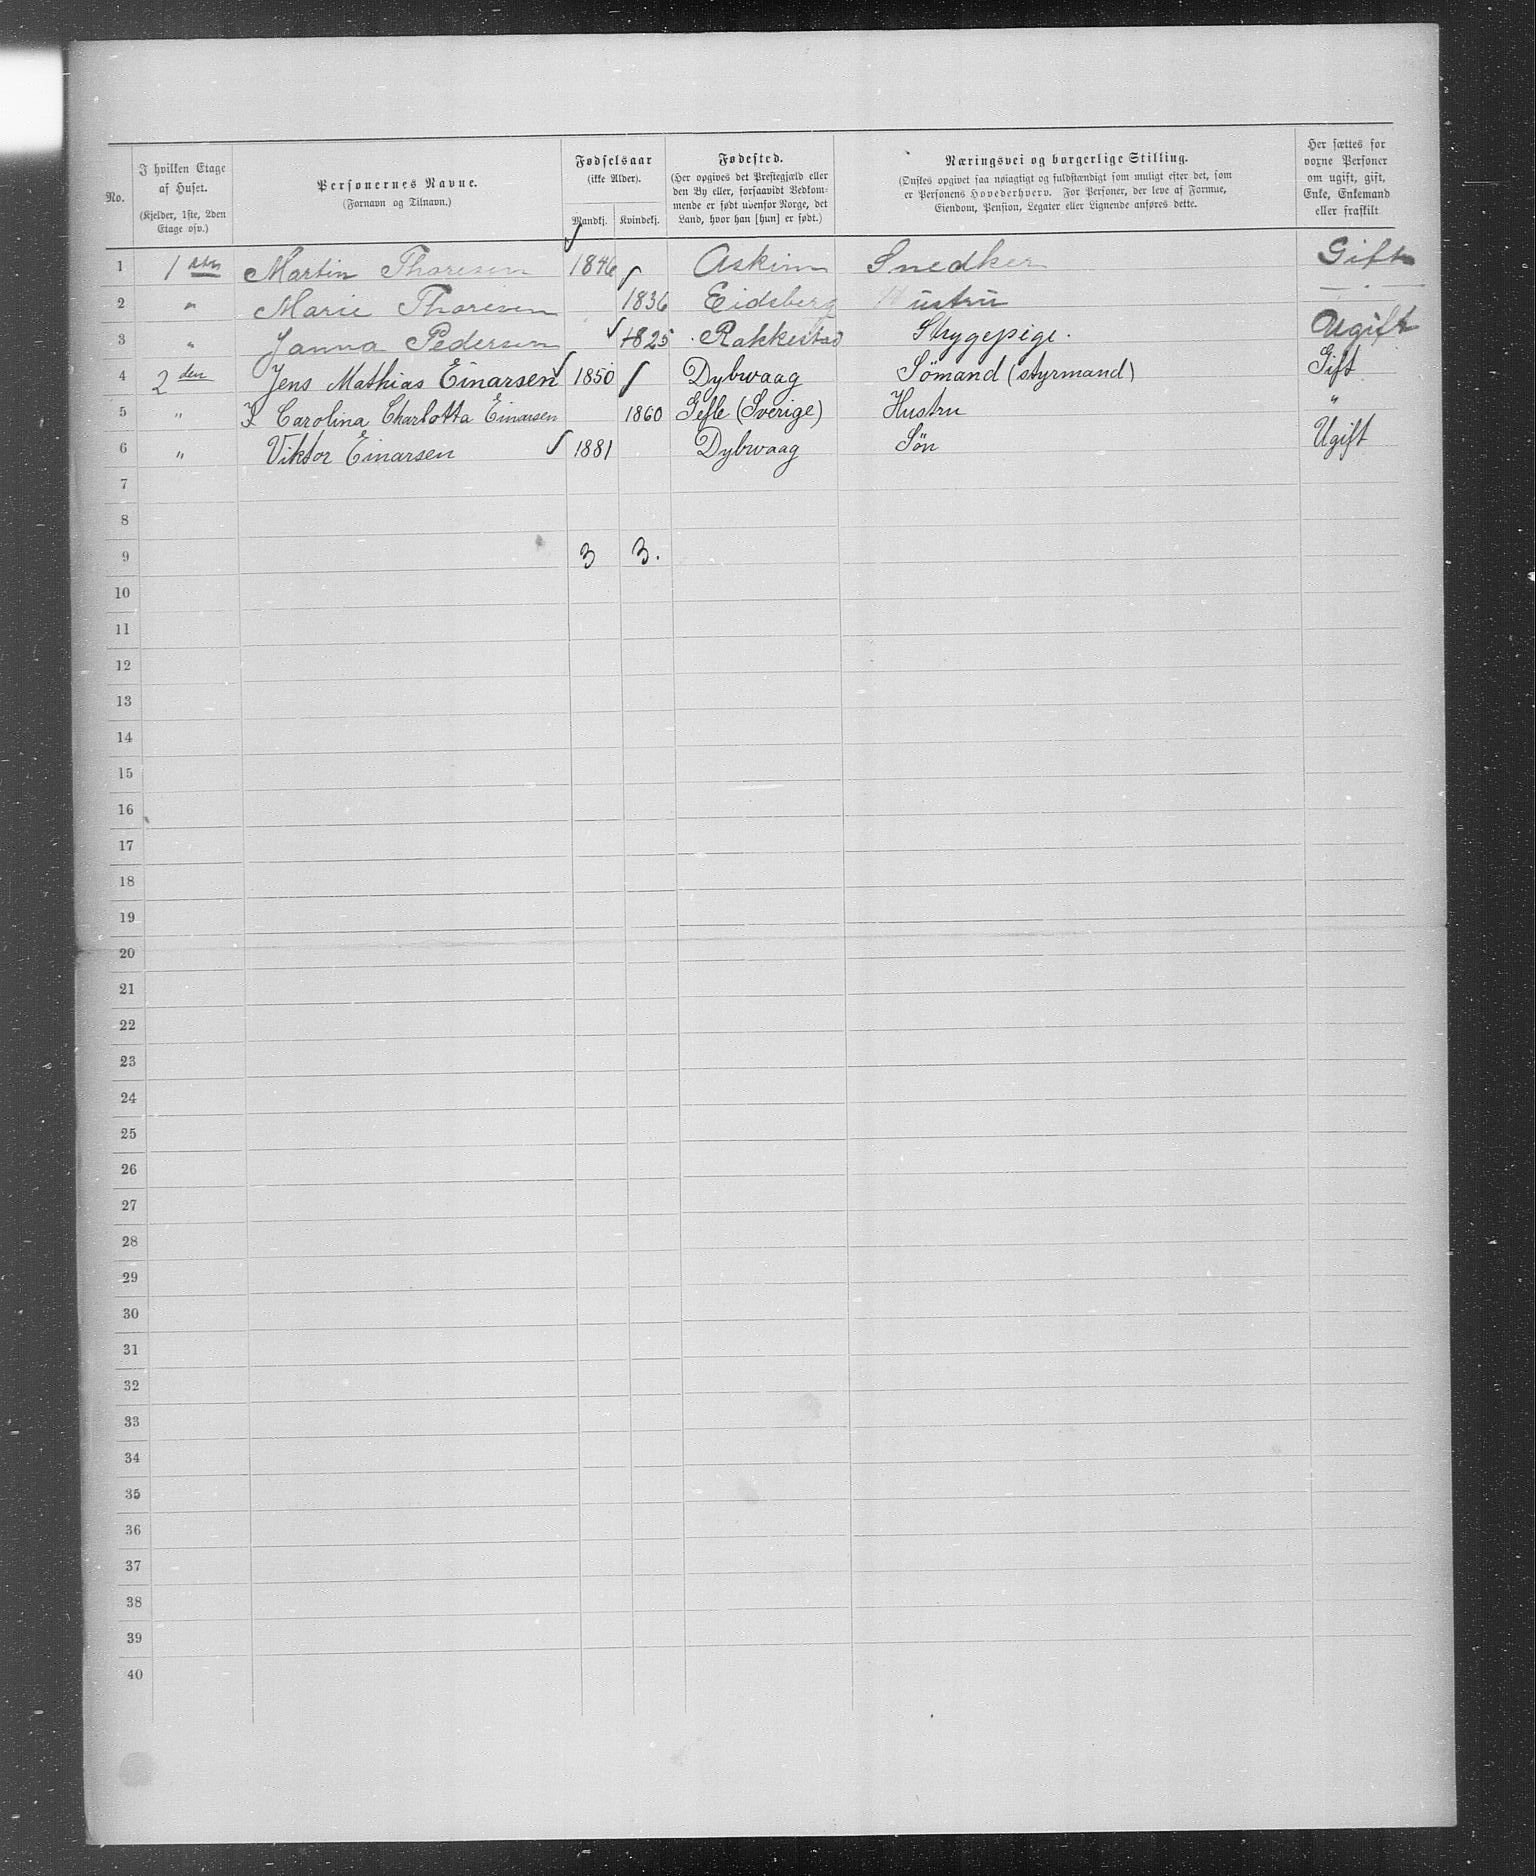 No.
I hvilken Etage af Huset.
(Kjelder, 1ste, 2den Etage osv.)
Personernes Navne.
(Fornavn og Tilnavn.)
Fødselsaar
(ikke Alder).
Mandkj. Kvindekj.
Fødested.
(Her opgives det Prestegjæld eller
den By eller, forsaavidt Vedkom-
mende er født udenfor Norge, det
Land, hvor han [hun] er født.)
Næringsvei og borgerlige Stilling.
(Ønskes opgivet saa nøiagtigt og fuldstændigt som muligt efter det, som
er Personens Hovederhverv. For Personer, der leve af Formue,
Eiendom, Pension, Legater eller Lignende anføres dette.
Her sættes for
voxne Personer
om ugift, gift,
Enke, Enkemand
eller fraskilt
1 1 ste Martin Thoresen 1846 Askim Snedker Gift
2 " Marie Thoresen 1836 Eidsberg Hustru — " —
3 " Janna Pedersen 1825 Rakkestad Strygepige. Ugift
4 2 den Jens Mathias Einarsen 1850 Dybwaag Sömand (styrmand) Gift
5 " Carolina Charlotta Einarsen 1860 Gefle (Sverige) Hustru "
6 " Viktor Einarsen 1881 Dybwaag Sön Ugift
7
8
9 3 3.
10
11
12
13
14
15
16
17
18
19
20
21
22
23
24
25
26
27
28
29
30
31
32
33
34
35
36
37
38
39
40